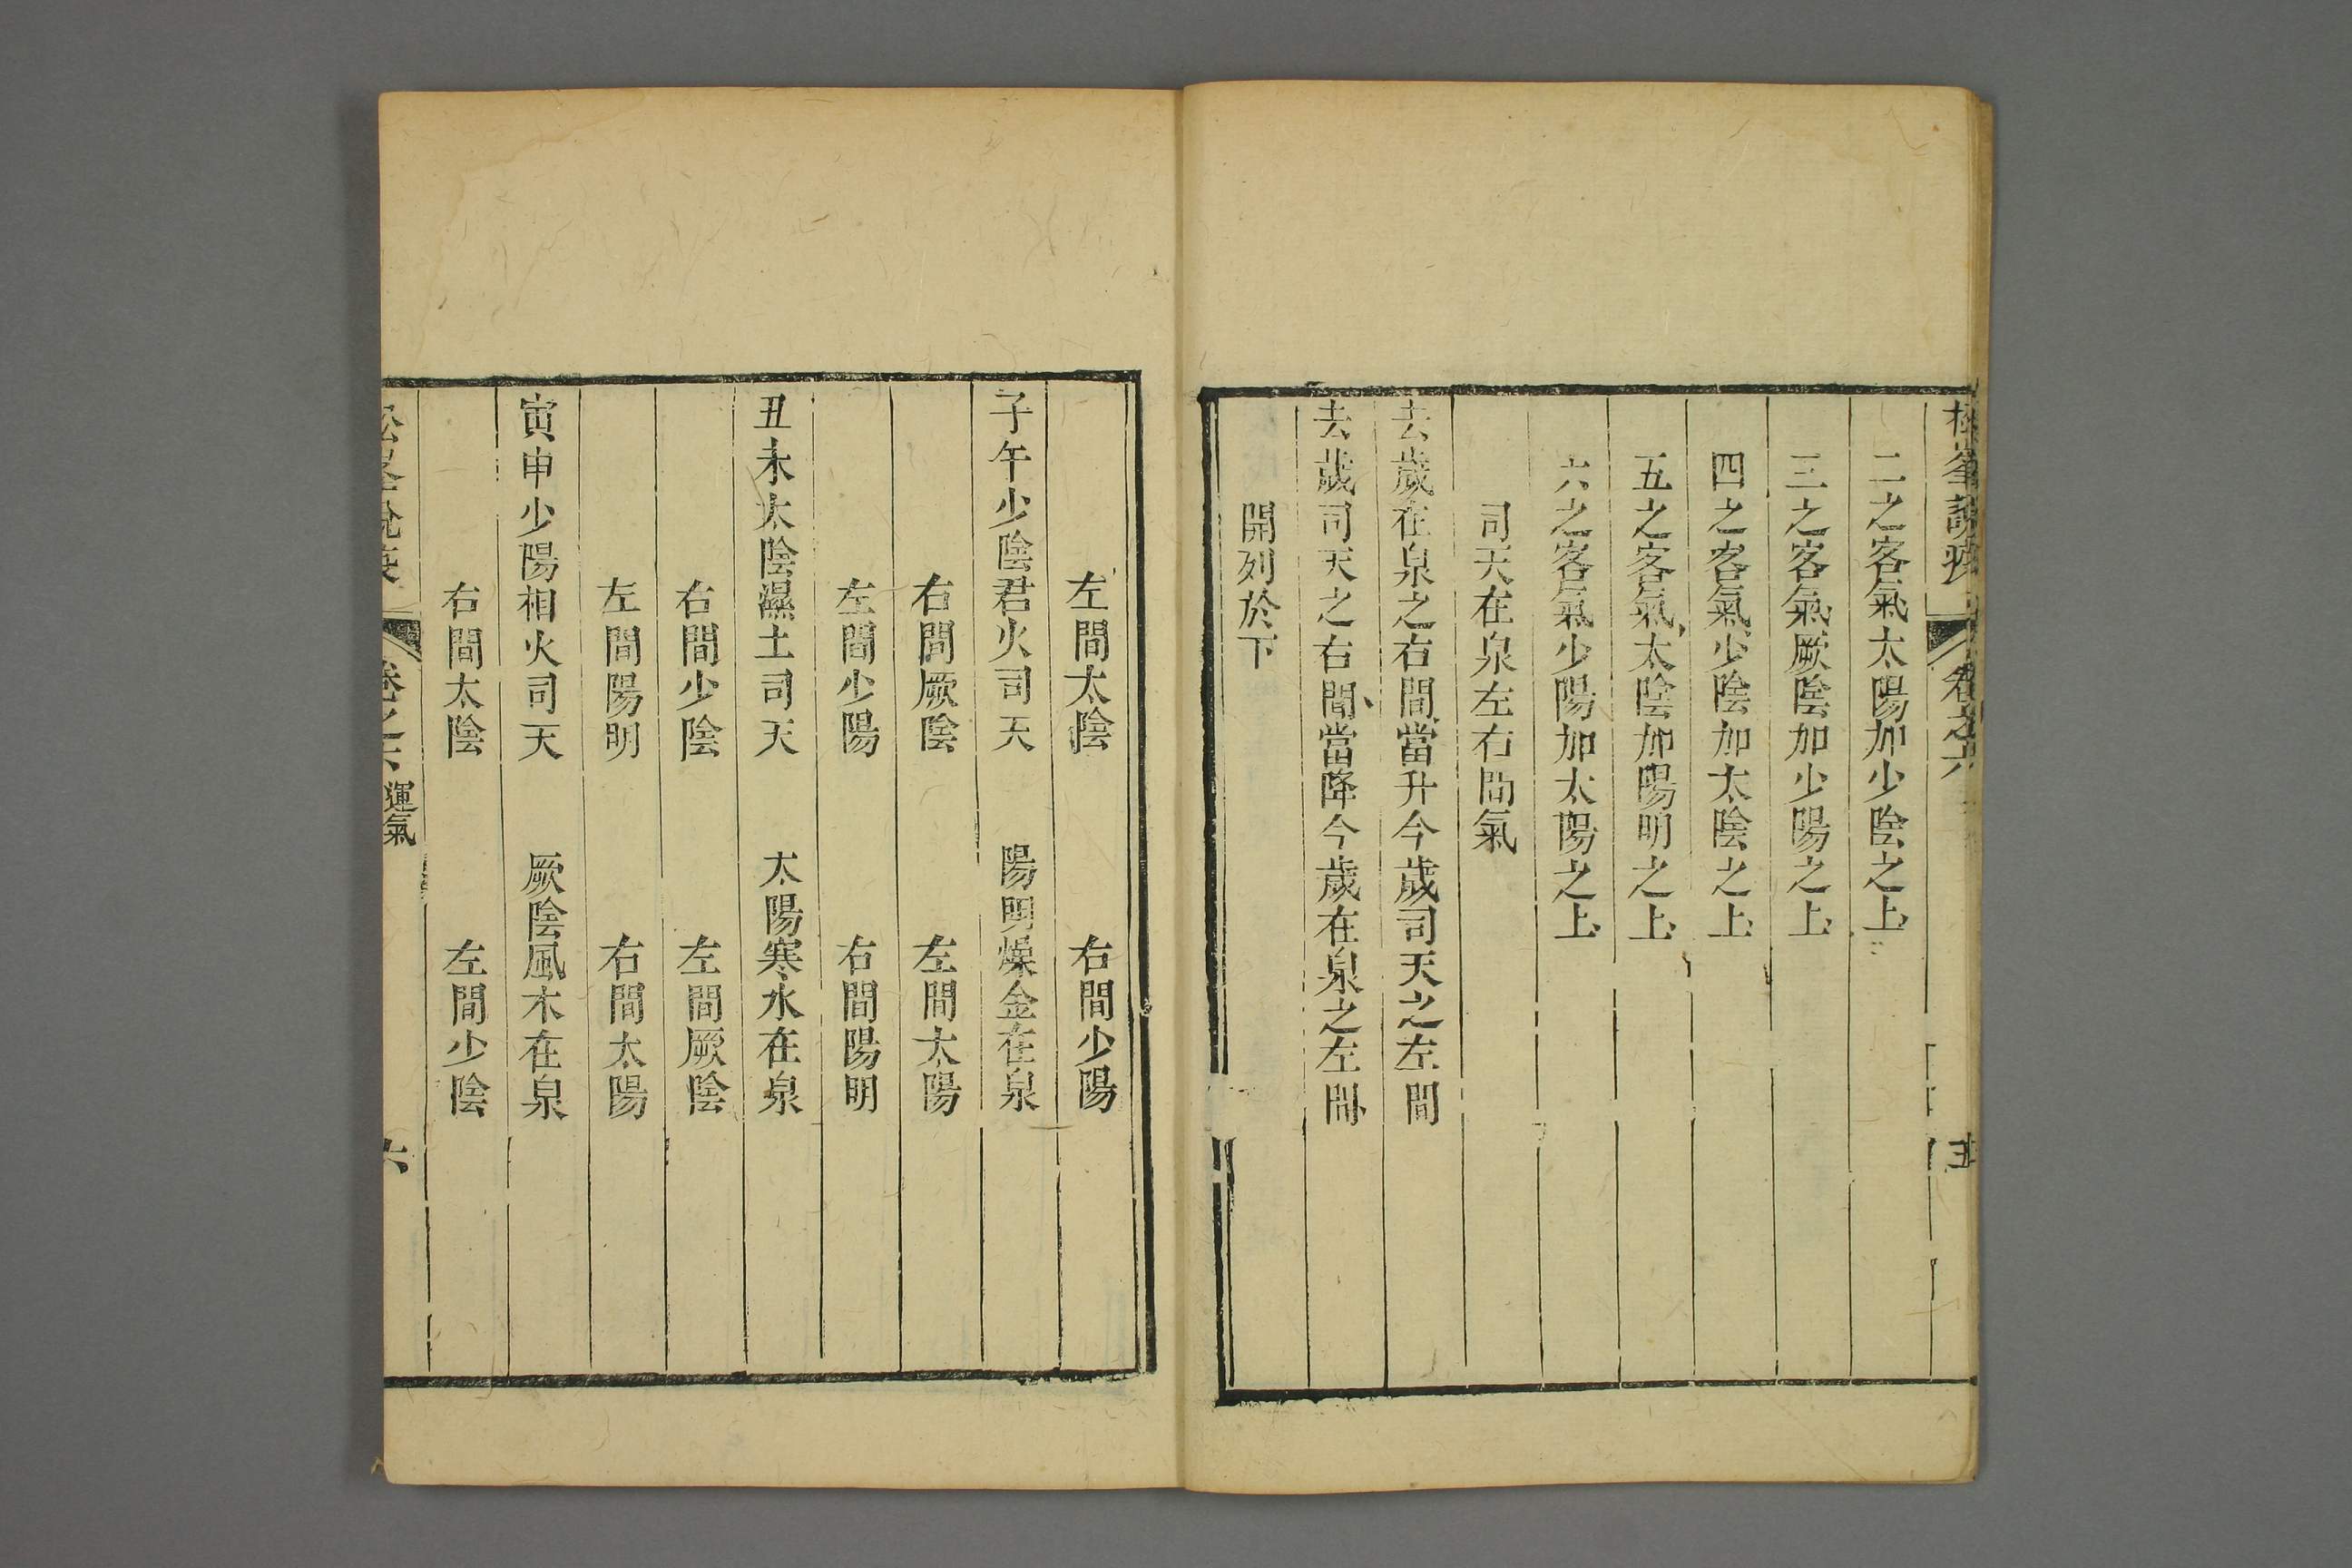 松峯說疫 卷之六 五
二之客氣太陽加少陰之上
三之客氣厥陰加少陽之上
四之客氣少陰加太陰之上
五之客氣太陰加陽明之上
六之客氣少陽加太陽之上
司天在泉左右間氣
去歲在泉之右間當升今歲司天之左間
去歲司天之右間當降今歲在泉之左間
開列於下
左間太陰 右間少陽
子午少陰君火司天 陽明燥金在泉
右間厥陰 左間太陽
左間少陽 右間陽明
丑未太陰濕土司天 太陽寒水在泉
右間少陰 左間厥陰
左間陽明 右間太陽
寅申少陽相火司天 厥陰風木在泉
右間太陰 左間少陰
松峯說疫 卷之六 運氣 六